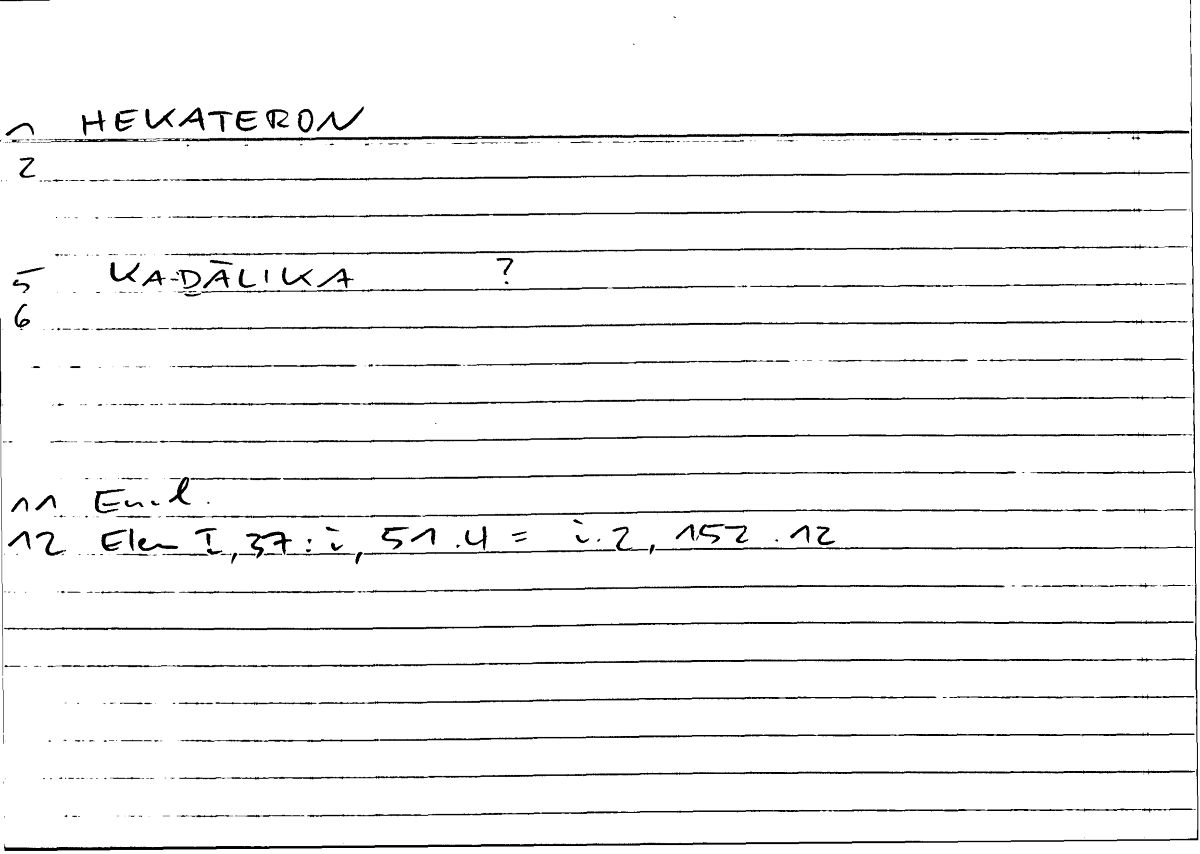 1 HEKATERON
2
5 KA-ḎĀLIKA ?
6
11 Eucl.
12 Elem I, 37 : i, 51.4 = i.2, 152.12